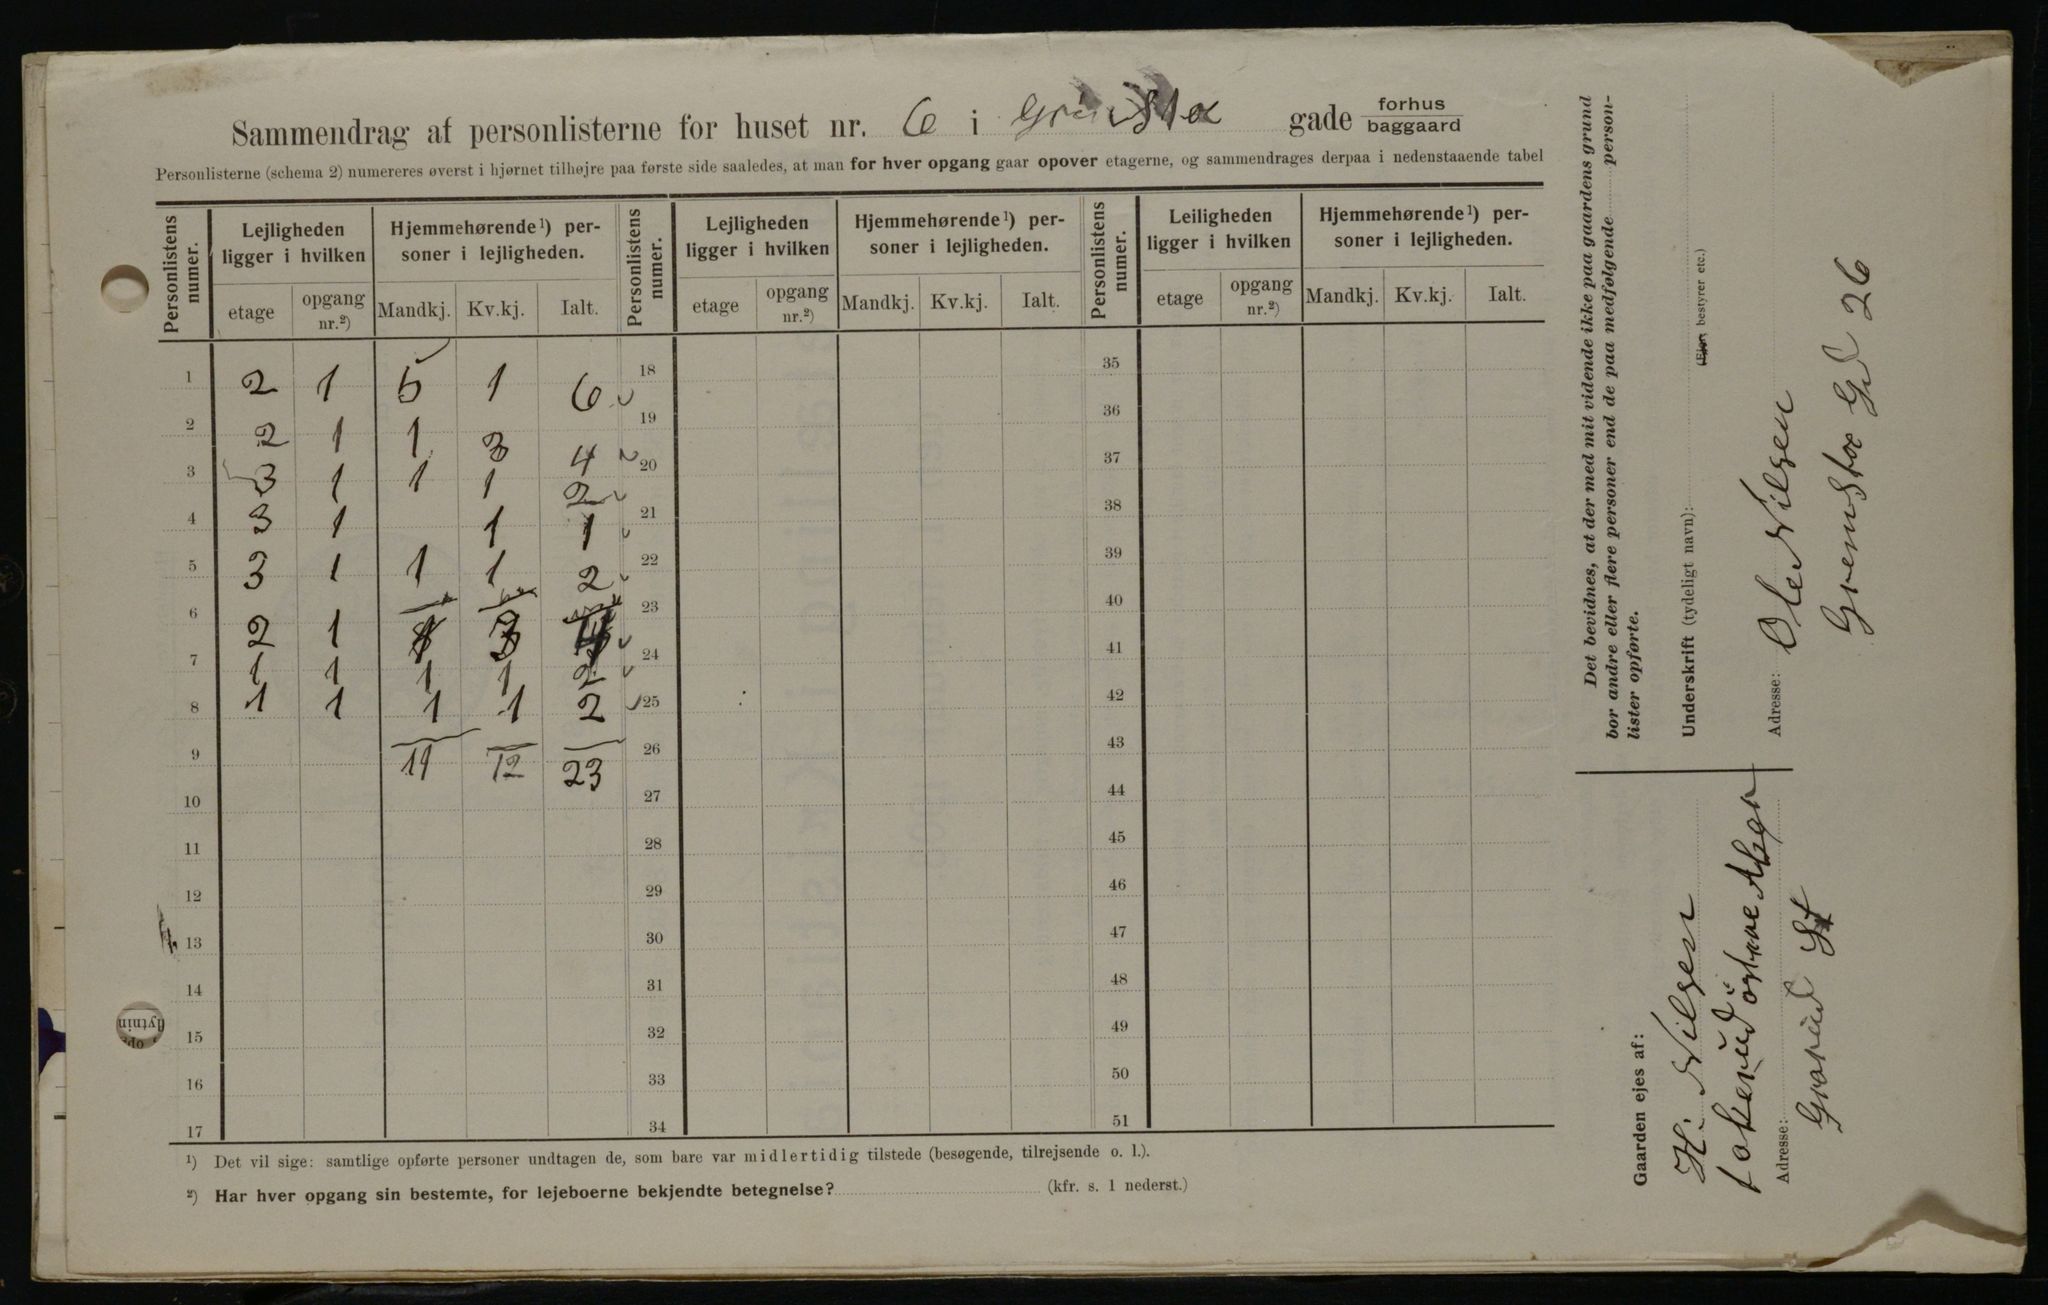 Sammendrag af personlisterne for huset nr. 6 i gade forhus baggaard
Personlisterne (schema 2) numereres øverst i hjørnet tilhøjre paa første side saaledes, at man for hver opgang gaar opover etagerne, og sammendrages derpaa i nedenstaaende tabel
Personlistens numer. Lejligheden ligger i hvilken Hjemmehørende¹) personer i lejligheden. Personlistens numer. Lejligheden ligger i hvilken Hjemmehørende¹) personer i lejligheden. Personlistens numer. Leiligheden ligger i hvilken Hjemmehørende¹) personer i lejligheden.
etage opgang nr.²) Mandkj. Kv.kj. Ialt. etage opgang nr.²) Mandkj. Kv.kj. Ialt. etage opgang nr.²) Mandkj. Kv.kj. Ialt.
1 2 1 5 1 6 18 35
2 2 1 1 3 4 19 36
3 3 1 1 1 2 20 37
4 3 1 1 1 21 38
5 3 1 1 1 2 22 39
6 2 1 3 23 40
7 1 1 1 1 2 24 41
8 1 1 1 1 2 25 42
9 11 12 23 26 43
10 27 44
11 28 45
12 29 46
13 30 47
14 31 48
15 32 49
16 33 50
17 34 51
¹) Det vil sige: samtlige opførte personer undtagen de, som bare var midlertidig tilstede (besøgende, tilrejsende o. l.).
²) Har hver opgang sin bestemte, for lejeboerne bekjendte betegnelse? (kfr. s. 1 nederst.)
Det bevidnes, at der med mit vidende ikke paa gaardens grund
bor andre eller flere personer end de paa medfølgende person-
lister opførte.
Underskrift (tydeligt navn):
(Ejer, bestyrer etc.)
Ole Nilsen
Adresse:
Grensto Gd 26
Gaarden ejes af:
H. Nilsen
Adresse:
Grorud St
flytnin